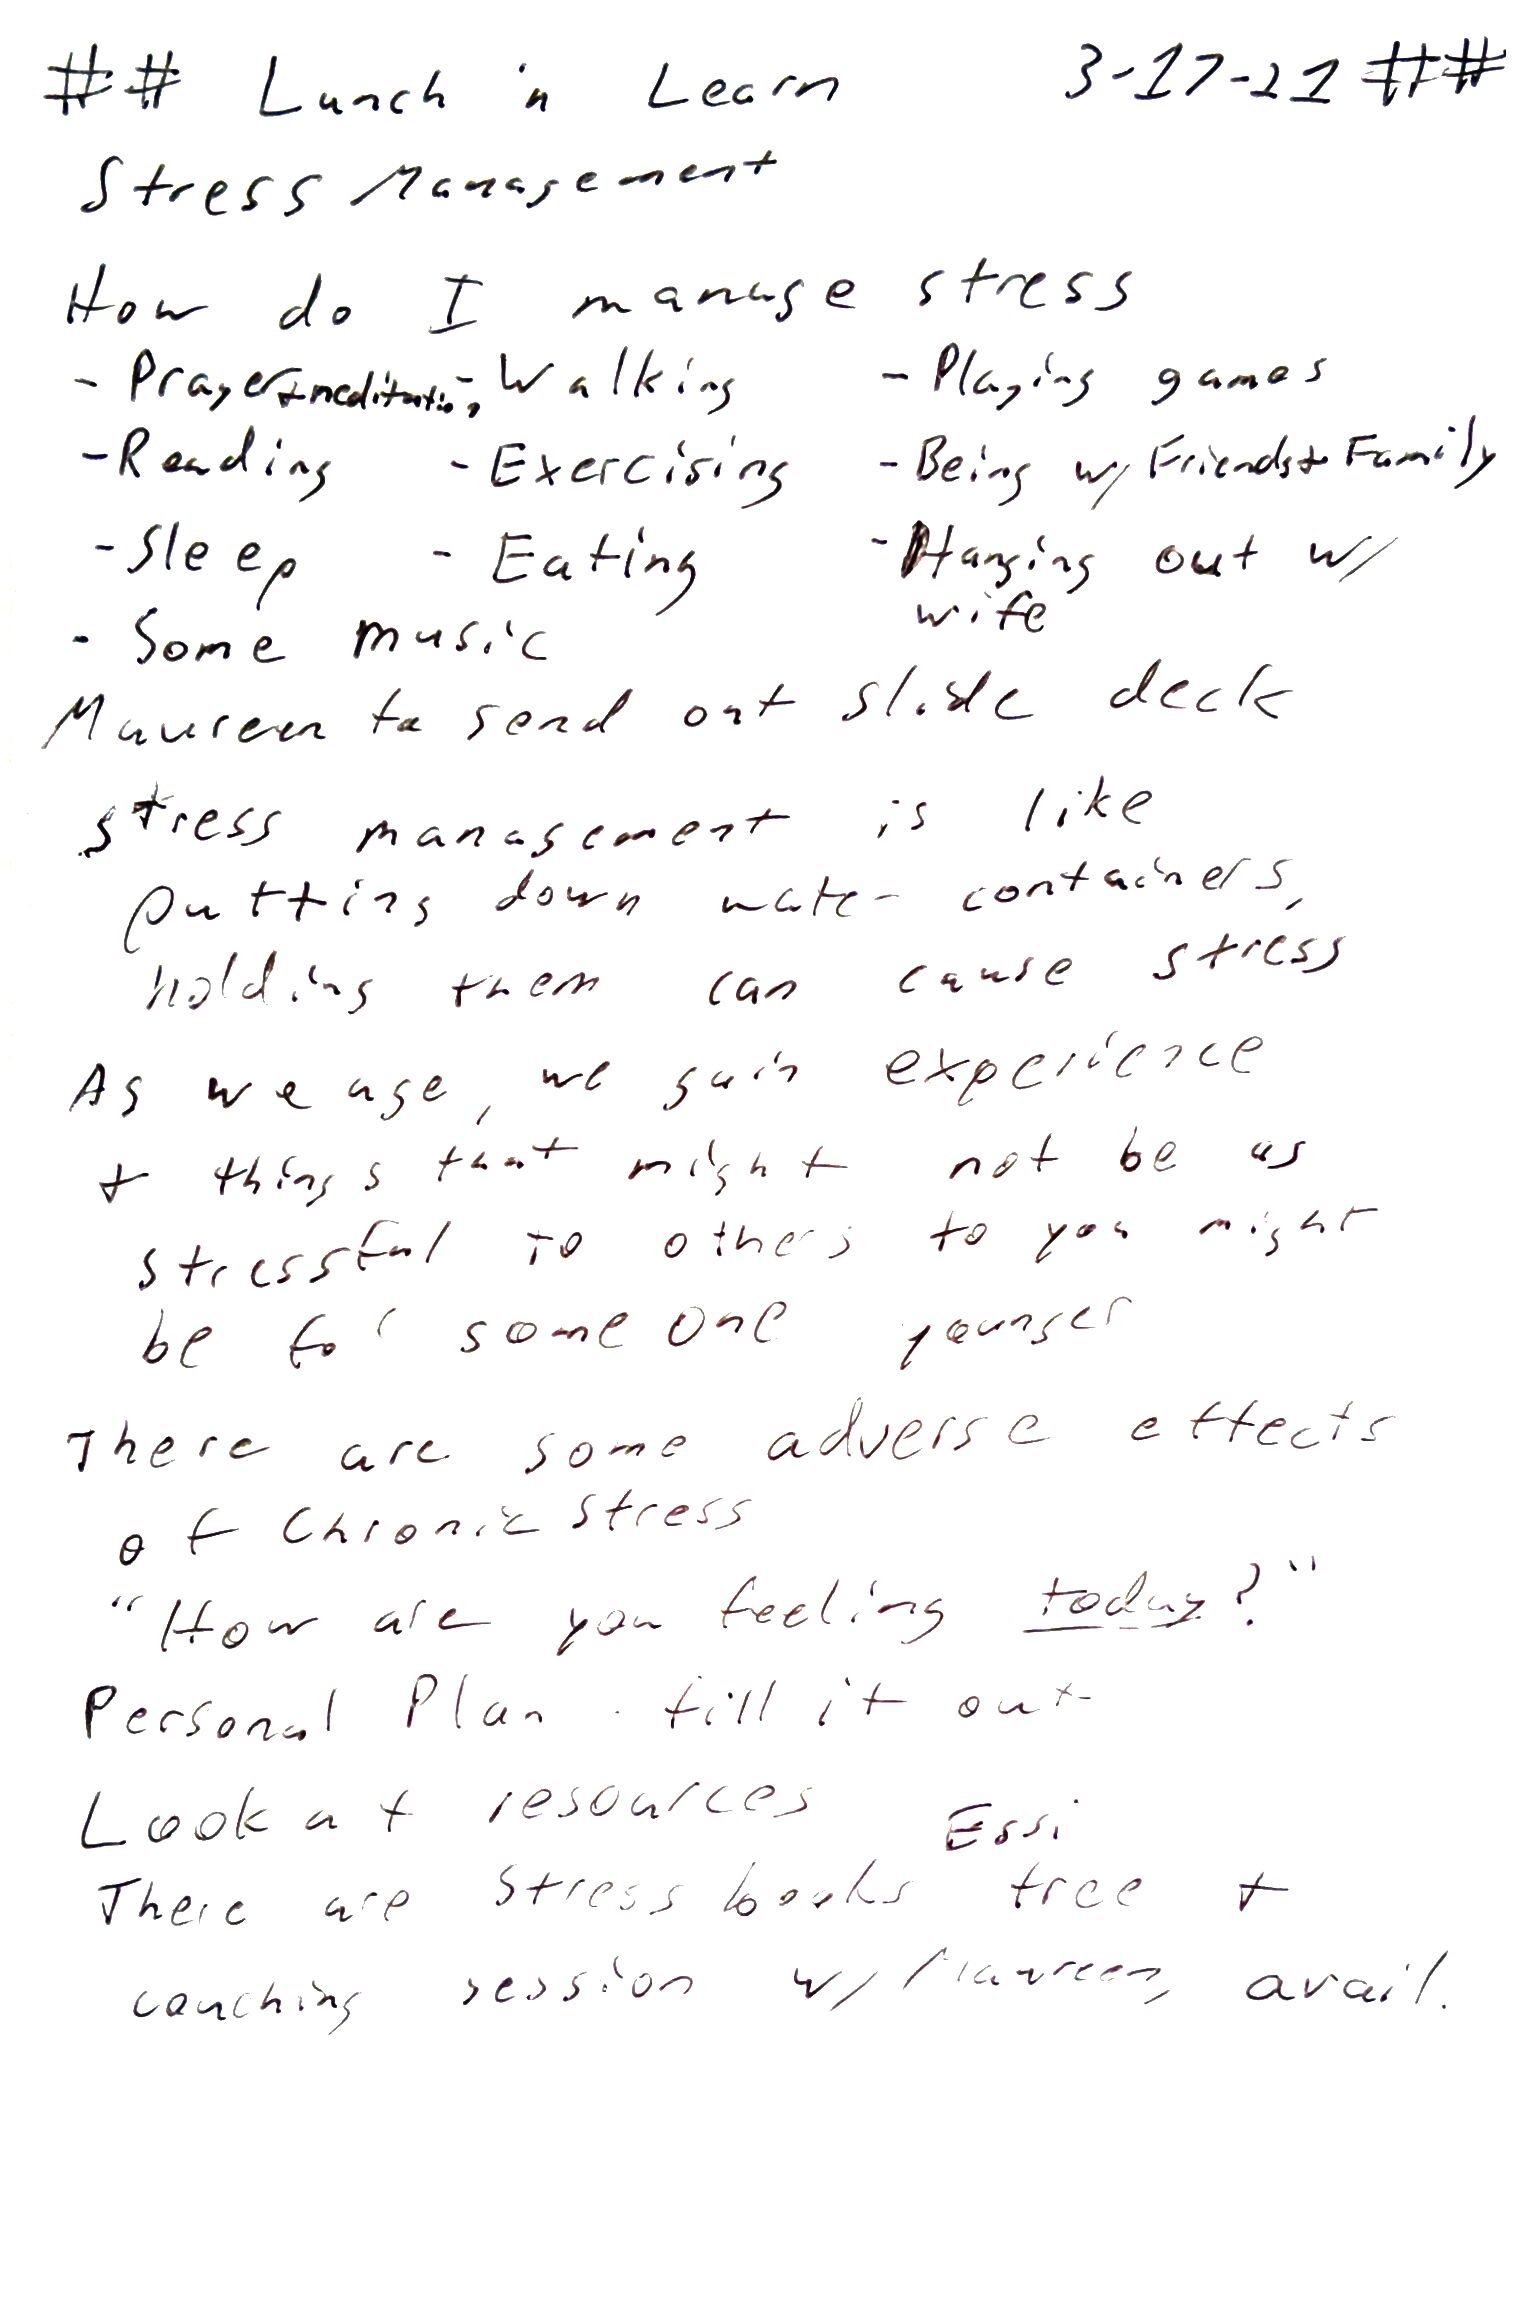 ## Lunch 'n Learn 3-17-21 ##
Stress Management
How do I manage stress
- Prayer + meditation - Walking - Playing games
- Reading - Exercising - Being w/ Friends + Family
- Sleep - Eating - Hanging out w/
wife
- Some music
Maureen to send out slide deck
stress management is like
putting down water containers,
holding them can cause stress
As we age, we gain experience
+ things that might not be as
stressful to others to you might
be for someone younger
There are some adverse effects
of Chronic stress
"How are you feeling today?"
Personal Plan - fill it out
Look at resources
Essi
There are stress books free +
coaching session w/ Maureen, avail.